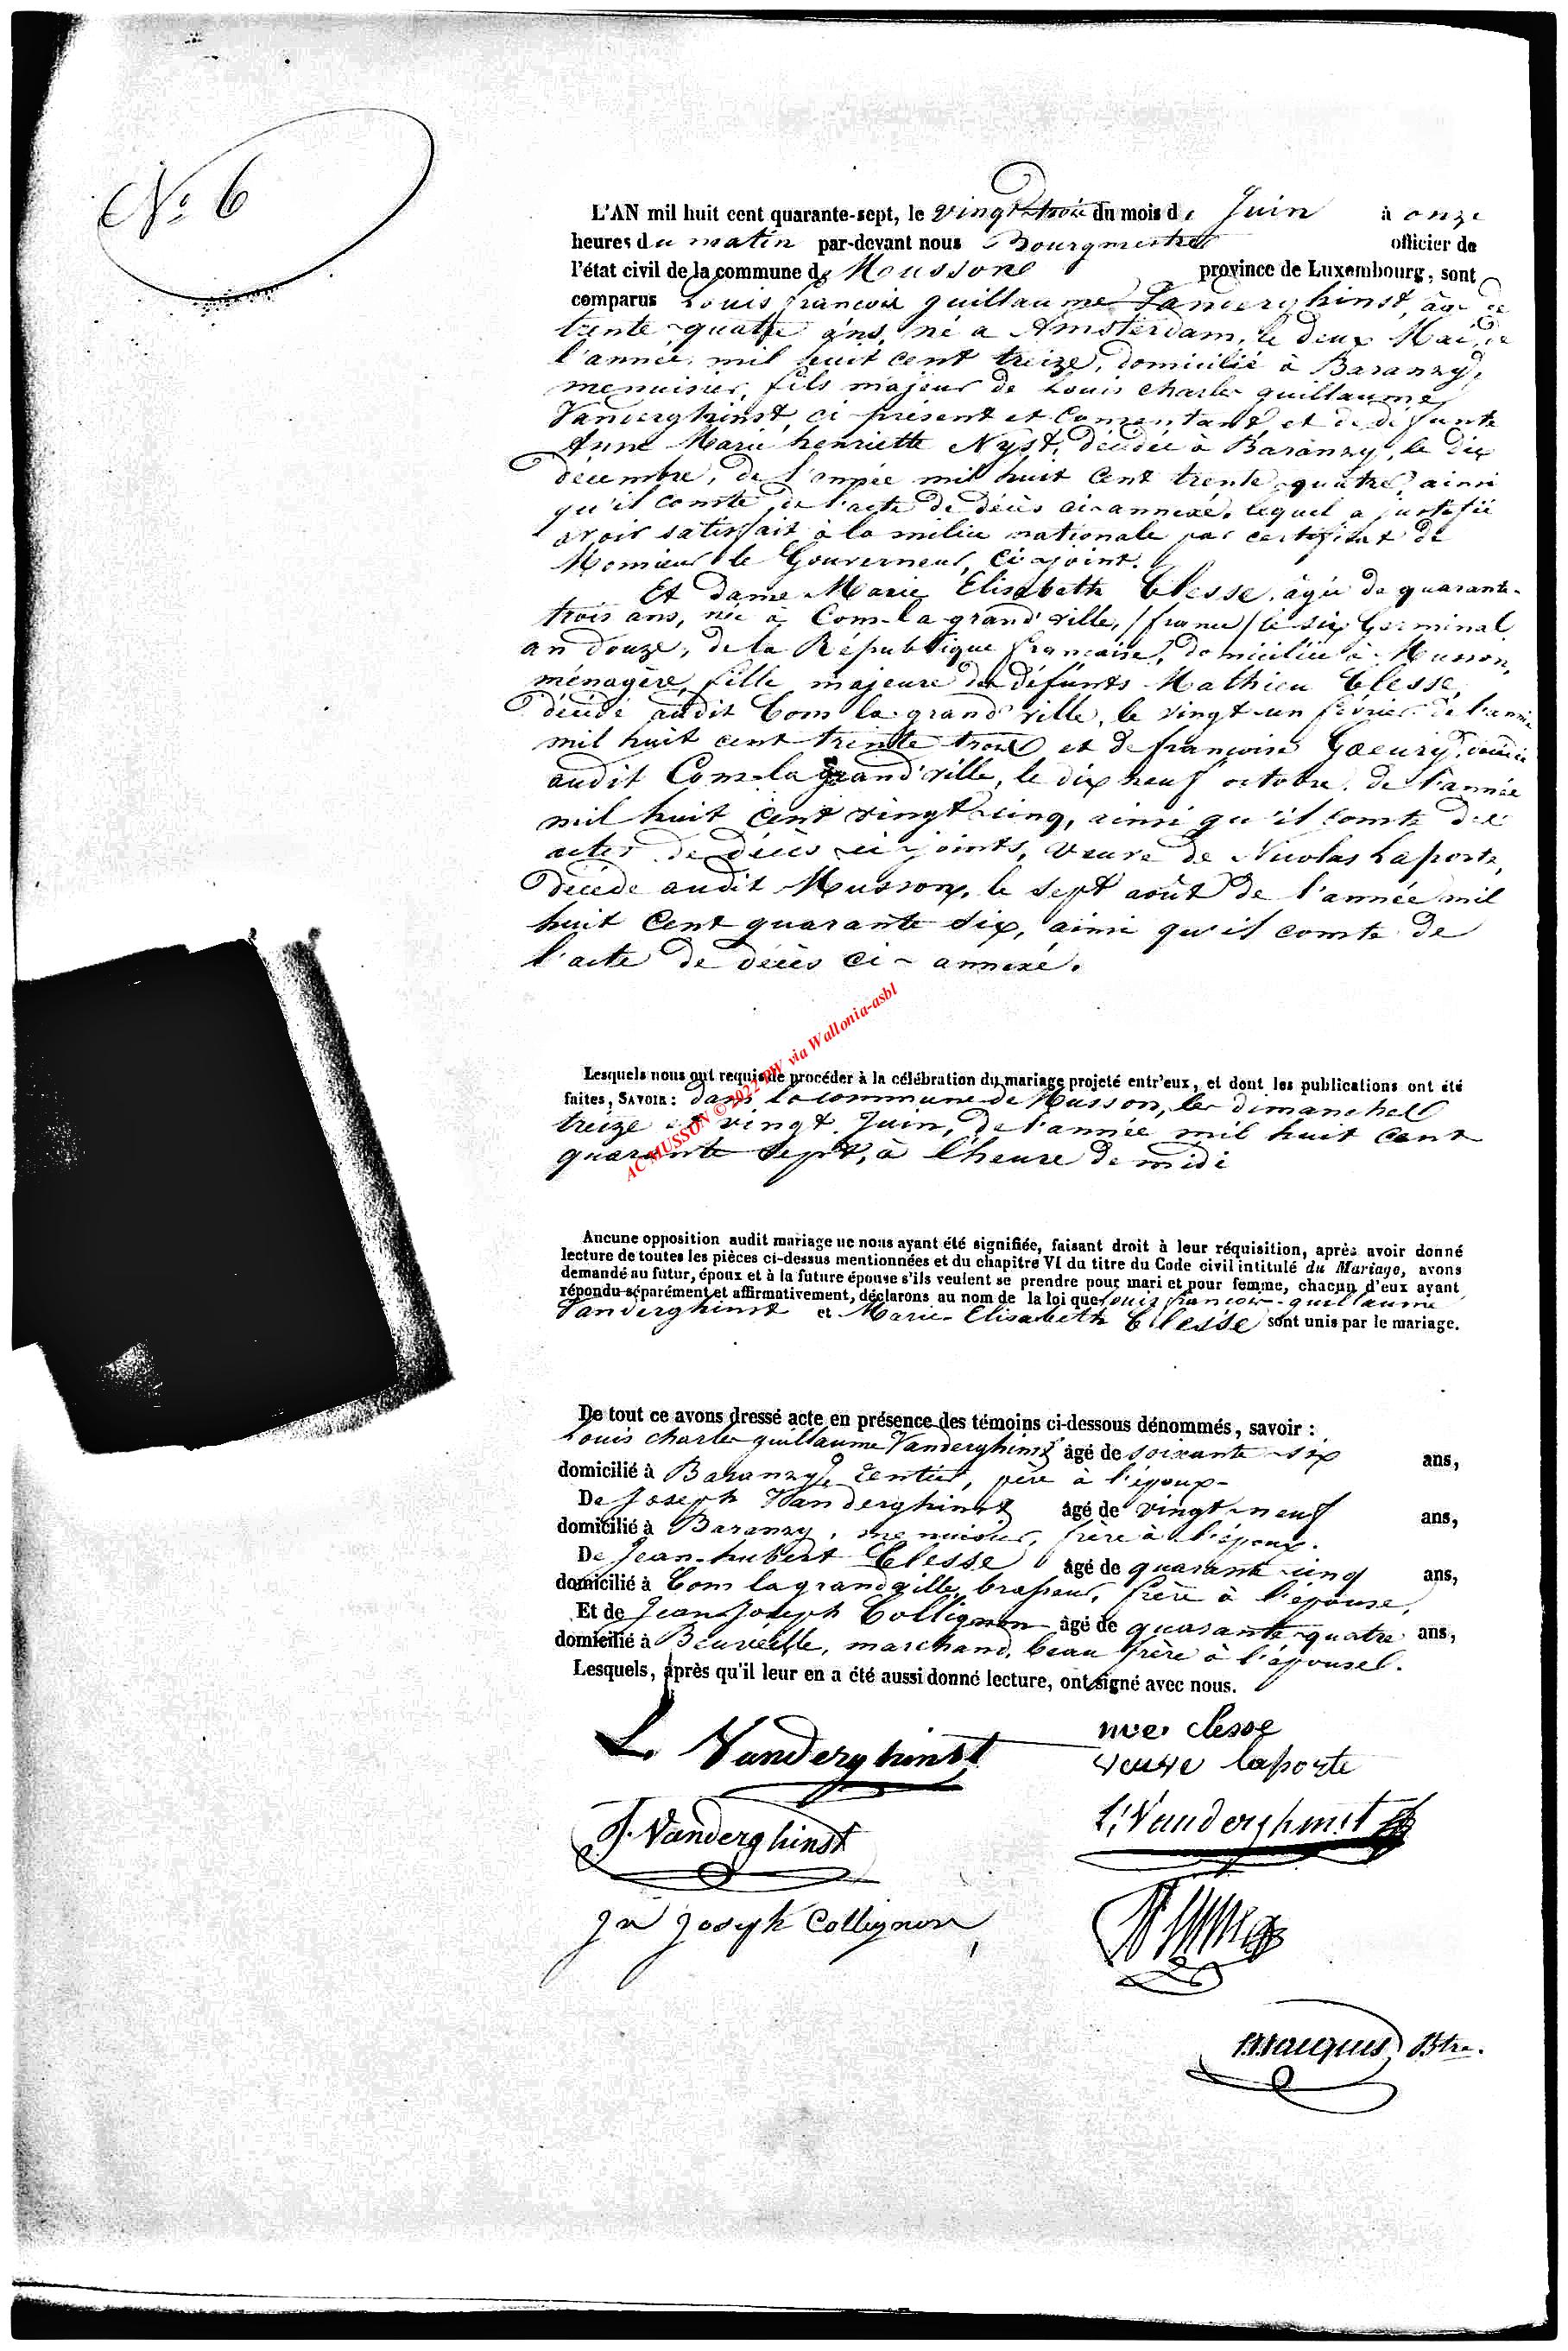 N° 6
L'AN mil huit cent quarante-sept, le vingt-trois du mois de Juin à onze
heures du matin par-devant nous Bourgmestre officier de
l'état civil de la commune de Mousson province de Luxembourg, sont
comparus Louis françois guillaume Vanderghinst, âgé de
trente-quatre ans, né à Amsterdam, le deux Mai, de
l'année mil huit cent treize, domicilié à Baranzy,
menuisier, fils majeur de Louis charles guillaume
Vanderghinst, ci présent et Consentant et de défunte
Anne Marie henriette Nyst, décédée à Baranzy, le dix
décembre, de l'année mil huit Cent trente-quatre, ainsi
qu'il conste de l'acte de décès ci-annexé, lequel a justifié
avoir satisfait à la milice nationale par certificat de
Monsieur le Gouverneur, Ci-joint.
Et dame Marie Elisabeth Clesse, âgée de quarante-
trois ans, née à Cons-la-grand'ville, (france) le six Germinal
an douze, de la République française, domiciliée à Musson,
ménagère, fille majeure des défunts Mathieu Clesse,
décédé audit Cons la grand'ville, le vingt-un février de l'année
mil huit cent trente trois et de françoise décédée
audit Cons-la grand'ville, le dix neuf octobre, de l'année
mil huit Cent vingt-cinq, ainsi qu'il conste des
actes de décès ci-joints, veuve de Nicolas Laporte,
décédé audit Musson, le sept août de l'année mil
huit Cent quarante six, ainsi qu'il conste de
l'acte de décès ci-annexé.
AC MUSSON © 2022 RW via Wallonia-asbl
Lesquels nous ont requis de procéder à la célébration du mariage projeté entr'eux, et dont les publications ont été
faites, SAVOIR: dans la commune de Musson, les dimanches
treize et vingt Juin, de l'année mil huit Cent
quarante sept, à l'heure de midi
Aucune opposition audit mariage ne nous ayant été signifiée, faisant droit à leur réquisition, après avoir donné
lecture de toutes les pièces ci-dessus mentionnées et du chapitre VI du titre du Code civil intitulé du Mariage, avons
demandé au futur, époux et à la future épouse s'ils veulent se prendre pour mari et pour femme, chacun d'eux ayant
répondu séparément et affirmativement, déclarons au nom de la loi que Louis françois-guillaume
Vanderghinst et Marie-Elisabeth Clesse sont unis par le mariage.
De tout ce avons dressé acte en présence des témoins ci-dessous dénommés, savoir :
Louis charles guillaume Vanderghinst âgé de soixante-six ans,
domicilié à Baranzy, rentier, père à l'époux-
De Joseph Vanderghinst âgé de vingt-neuf ans,
domicilié à Baranzy, menuisier, frère à l'époux.
De Jean-hubert Clesse âgé de quarante-cinq ans,
domicilié à Cons lagrandville, brasseur, frère à l'épouse,
Et de Jean-Joseph Collignon âgé de quarante-quatre ans,
domicilié à Beuveille, marchand, beau frère à l'épouse.
Lesquels, après qu'il leur en a été aussi donné lecture, ont signé avec nous.
L. Vanderghinst
mee clesse
veuve laporte
J. Vanderghinst
L. Vanderghinst
Jn Joseph Collignon
Btre.